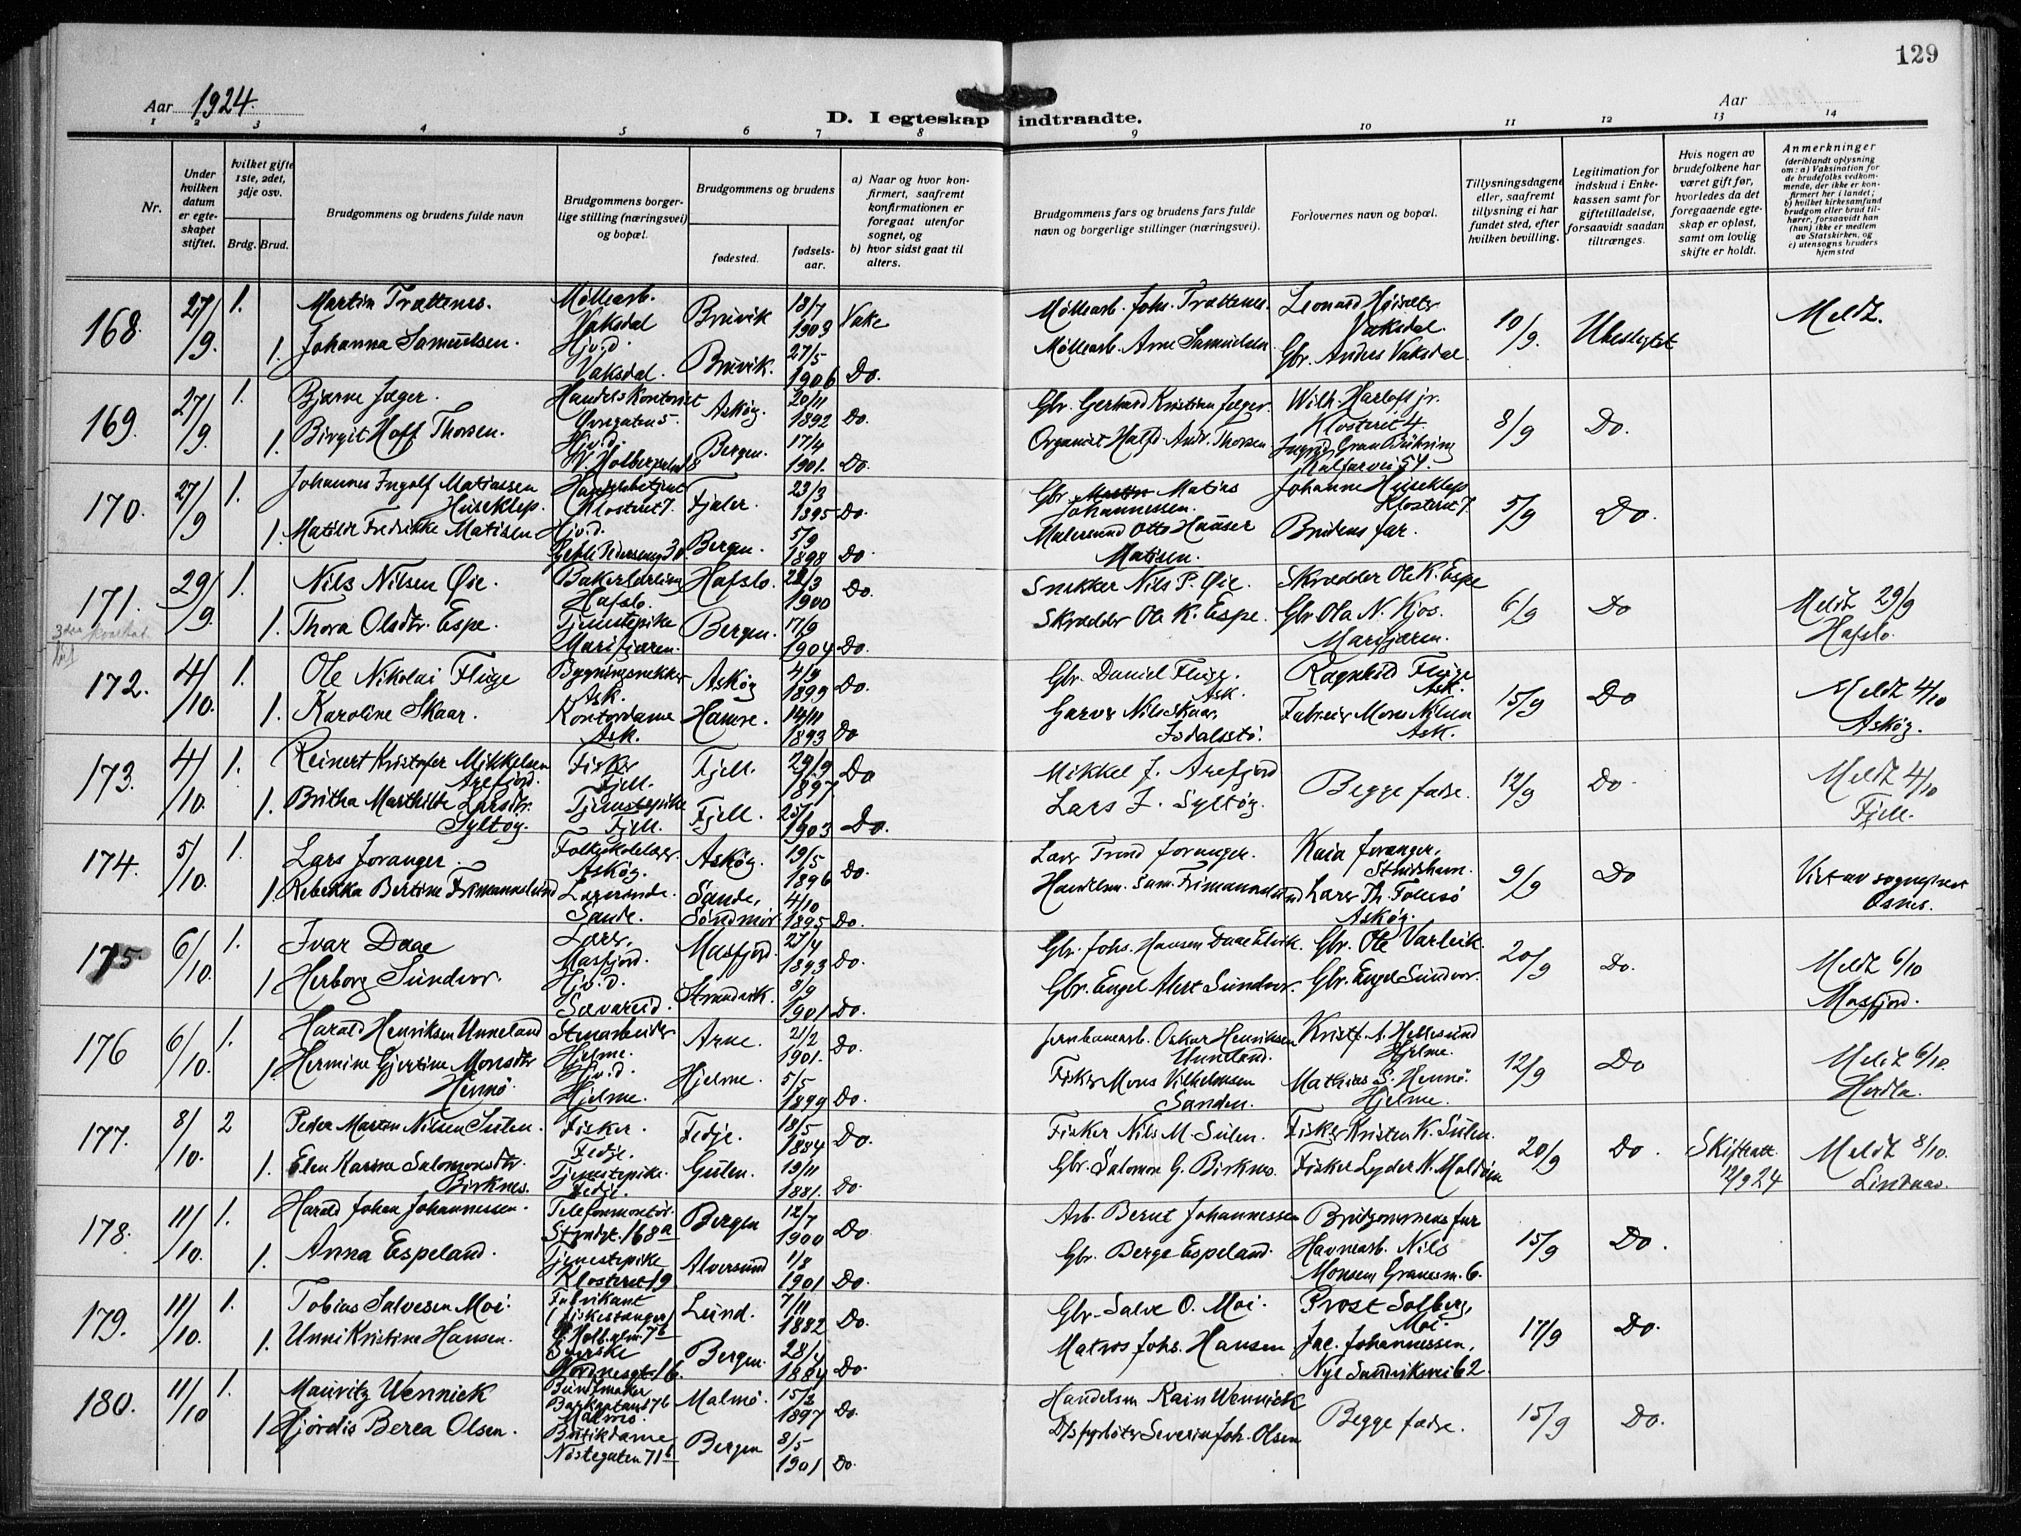 129
Aar 1924.
Aar
D. I egteskap indtraadte.
1 2 3 4 5 6 7 8 9 10 11 12 13 14
Nr.
Under hvilken datum er egteskapet stiftet.
hvilket gifte 1ste, 2det, 3dje osv.
Brdg. Brud.
Brudgommens og brudens fulde navn
Brudgommens borgerlige stilling (næringsvei) og bopæl.
Brudgommens og brudens
fødested.
fødselsaar.
a) Naar og hvor konfirmert, saafremt konfirmationen er foregaat utenfor sognet, og
b) hvor sidst gaat til alters.
Brudgommens fars og brudens fars fulde navn og borgerlige stillinger (næringsvei).
Forlovernes navn og bopæl.
Tillysningsdagene eller, saafremt tillysning ei har fundet sted, efter hvilken bevilling.
Legitimation for indskud i Enkekassen samt for giftetilladelse, forsaavidt saadan tiltrænges.
Hvis nogen av brudefolkene har været gift før, hvorledes da det foregaaende egteskap er opløst, samt om lovlig skifte er holdt.
Anmerkninger
(deriblandt oplysning om: a) Vaksination for de brudefolks vedkommende, der ikke er konfirmert her i landet; b) hvilket kirkesamfund brudgom eller brud tilhører, forsaavidt han (hun) ikke er medlem av Statskirken, og c) utensogns bruders hjemsted
168. 27/9. 1. Martin Trættenes. Møllearb. Vaksdal Bruvik 18/7 1903 Møllearb. Johs. Trættenes. Leonard Vaksdal. 10/9. Ubeslegtet Meldt.
1. Johanna Samuelsen. Hj.v.d. Vaksdal. Bruvik. 27/5 1906 Do. Møllearb. Arne Samuelsen Gbr. Anders Vaksdal.
169. 27/9 1. Bjarne Jæger. Handelskontorist Øvregaten 5. Askøy. 20/11 1892 Do. Gbr. Gerhard Kristian Jæger. Wilh. Harloff jr. Klosteret 4. 8/9 Do.
1. Birgit Hoff Thorsen. Hj.v.d. Bergen. 17/4 1901. Do. Organist Halfd. Andr. Thorsen Ingrid Gran Kalfarvei 54.
170. 27/9 1. Johannes Ingolf Matiassen Huseklep. Handelsbetjent Klosteret 7. Fjaler. 23/3 1895 Do. Gbr. Matias Johannessen. Johanne Huseklep Klosteret 7 5/9 Do.
1. Matilde Fredrikke Matisen Hj.v.d. Bergen. 5/9 1898 Do Otto Hauser Matisen. Brudens far.
171. 29/9. 1. Nils Nilsen Øie. Hafslo. Hafslo. 3 1900 Do. Snekker Nils P. Øie. Skrædder Ole K. Espe 6/9 Do Meldt 29/9 Hafslo.
1. Thora Olsdtr. Espe. Tjenestepike Marifjæren. Bergen. 17/9 1904 Do. Skrædder Ole K. Espe. Gbr. Ola N. Kjos. Marifjæren.
172. 4/10. 1. Ole Nikolai Fluge Bygningssnekker Ask. Askøy 4/9 1899 Do. Gbr. Daniel Fluge. Ask. Ragnhild Fluge Ask. 15/9 Do Meldt 4/10 Askøy.
1. Karoline Skaar. Kontordame Ask. Hamre. 14/11 1893 Do Garver Nils Skaar, Mons Nilsen Ask.
173. 4/10. 1. Reinert Kristofer Mikkelsen Arefjord. Fisker Fjell. Fjell. 29/9 1897 Do Mikkel J. Arefjord Begge fædre. 12/9 Do Meldt 4/10 Fjell.
1. Britha Marthilde Larsdtr. Syltøy. Tjenestepike Fjell. Fjell. 1903 Do. Lars J. Syltøy.
174. 5/10. 1. Lars Joranger. Folkeskolelærer. Askøy. Askøy. 19/5 1896 Do. Lærer Trond Joranger. Kaia Joranger, 9/9 Do
1 Rebekka Bertine Frimannslund Lærerinde. Sande. Sande, Søndmør. 4/10 1895 Do. Handelsm. Sam. Frimannslund Lærer Th. Askøy.
175 6/10. 1. Ivar Daae Lærer, Masfjord. Masfjord. 27/4 1893 Do. Gbr. Johs. Hansen Daae Gbr. Ole Varleik. 20/9 Do. Meldt 6/10 Masfjord.
1 Herborg Sundvor. Hj.v.d. Sævareid. Strandvik. 8/9 1901 Do. Gbr. Engel Sundvor. Gbr. Engel Sundvor.
176 6/10. 1. Harald Henriksen Unneland Stenarbeider Hjelme. Arne. 21/2 1901. Do. Oskar Henriksen Unneland. Kristf. A. Hellesund Hjelme. 12/9 Do Meldt 6/10. Herdla.
1. Hermine Gjertine Monsdtr Hernø. Hj.v.d. Hjelme. Hjelme. 5/5 1899 Do. Fisker Mons Vilhelmsen Sanden. Mathias S. Hjelme.
177. 8/10. 2 Peder Martin Nilsen Sulen. Fisker. Fedje. Fedje. 18/5 1884 Do. Fisker Nils M. Sulen. Fisker Kristen K. Sulen. 20/9 Do. Skifteatt. 12/9 24 Meldt 8/10. Lindaas.
1. Elen Karine Salomonsdtr. Birknes. Tjenestepike. Fedje. Gulen. 19/11 1881. Do. Gbr. Salomon G. Birknes. Fisker Lyder N.
178. 11/10. 1. Harald Johan Johannessen. Telefonmontør Strandgt. 168a Bergen 12/7 1900 Do Arb. Bernt Johannessen Brudgommens far 15/9 Do.
1. Anna Espeland. Tjenestepike Klosteret 19. Alversund 1/8 1901 Do. Gbr. Berge Espeland. Havnearb. Nils Monsen
179. 11/10. 1. Tobias Salvesen Moi. Fabrikant Lund. 7/11 1882 Do. Gbr. Salve O. Moi. Prost Solberg, Moi. 17/9 Do.
1. Unni Kristine Hansen. Bergen. 28/4 1884 Do Matros Johs. Hansen Jac. Johannessen, Nye Sandviksvei 62.
180. 11/10 1. Mauritz Wennick Malmø. Malmø. 1897 Do. Handelsm. Wennick Begge fædre. 15/9 Do.
1 Hjørdis Berea Olsen. Butikdame Nøstegaten 71b Bergen 8/5 1901 Do. D/S fyrbøter Severin Joh. Olsen